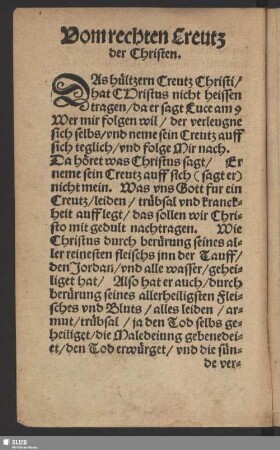 Vom rechten Creutz
der Christen.
DAs hültzern Creutz Christi/
hat CHristus nicht heissen
tragen/da er sagt Luce am 9
Wer mir folgen wil / der verleugne
sich selbs/vnd neme sein Creutz auff
sich teglich/vnd folge Mir nach.
Da höret was Christus sagt/ Er
neme sein Creutz auff sich (sagt er)
nicht mein. Was vns Gott fur ein
Creutz/leiden / trübsal vnd kranck-
heit auff legt / das sollen wir Chri-
sto mit gedult nachtragen. Wie
Christus durch berürung seines al-
ler reinesten fleischs jnn der Tauff/
den Jordan/vnd alle wasser/gehei-
liget hat / Also hat er auch/durch
berürung seines allerheiligsten Flei-
sches vnd Bluts / alles leiden / ar-
mut/trübsal / ja den Tod selbs ge-
heiliget/die Maledeiung gebenedei-
et/den Tod erwürget/ vnd die sün-
de ver-
SLUB